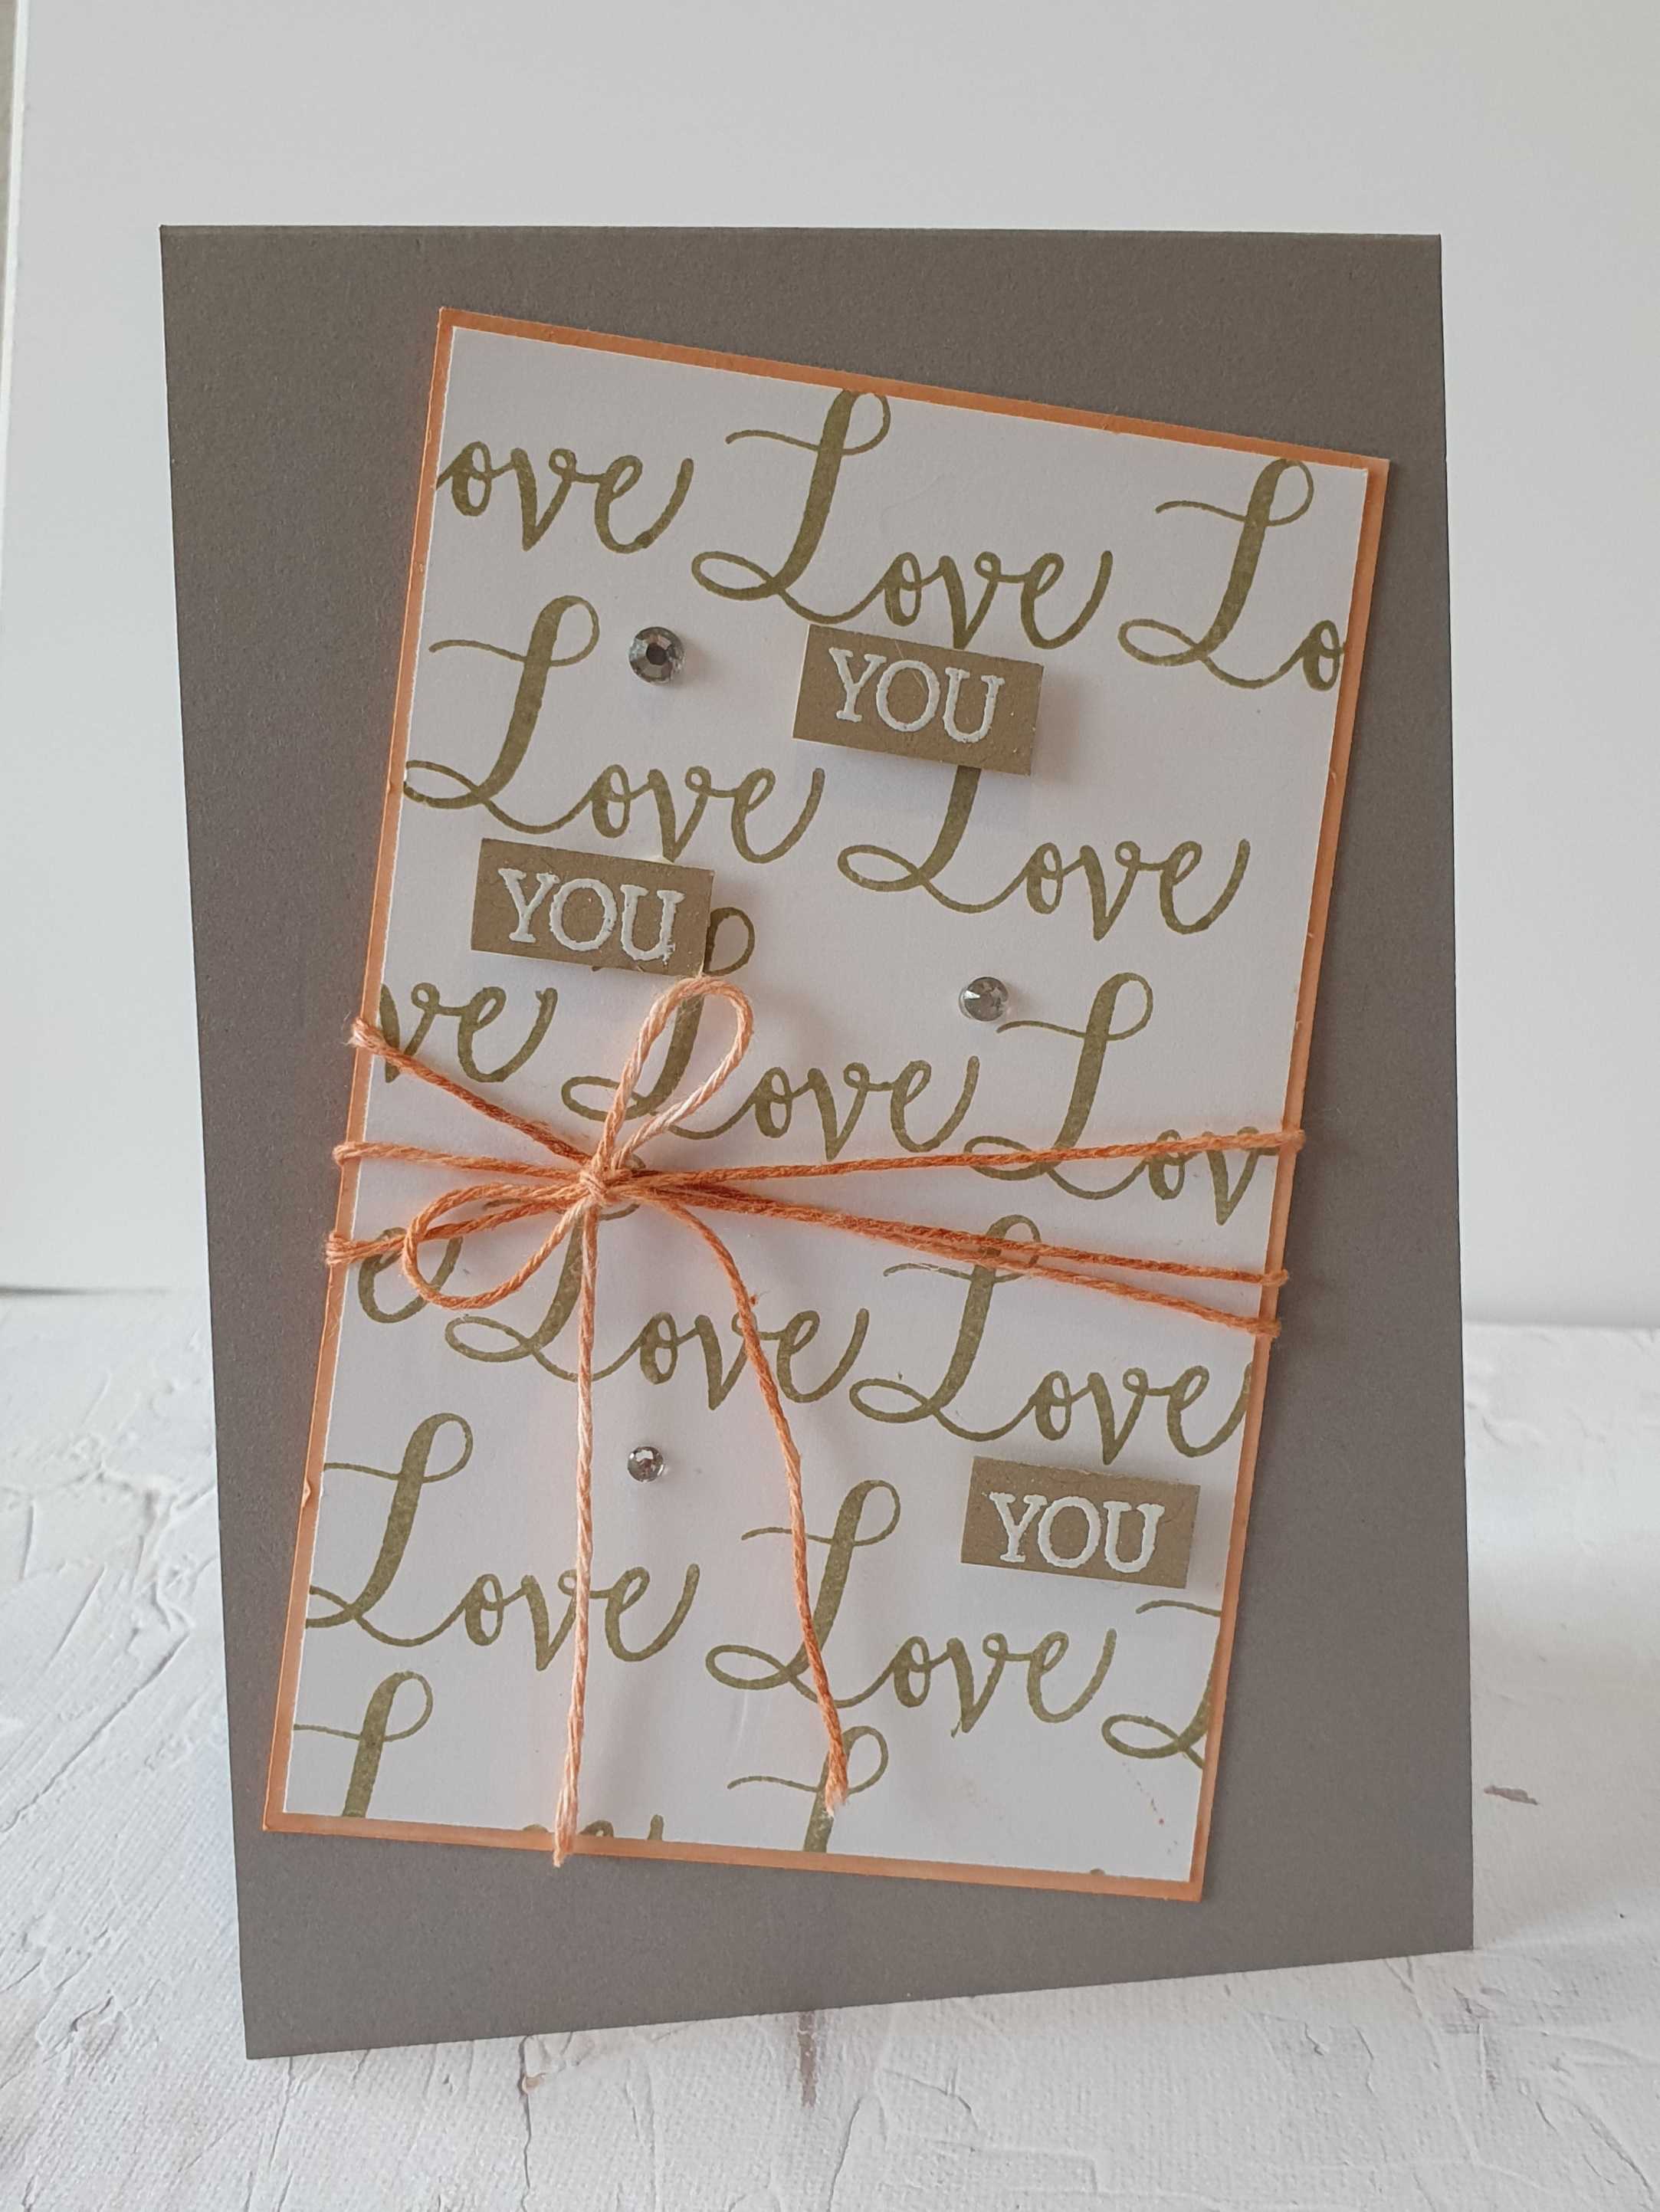 ove Love Lo
YOU
Love Love
YOU
ve Love Lov
e Love Love
YOU
Love Love L
L ove L